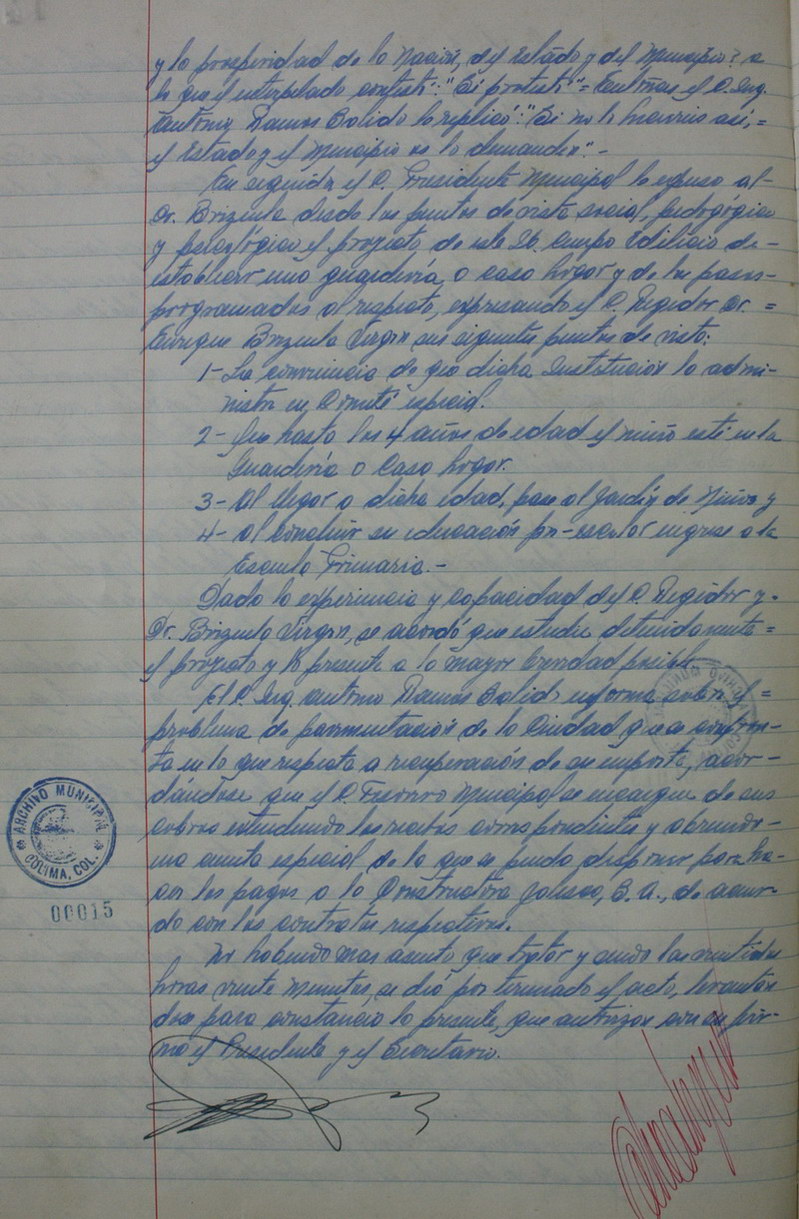 y la prosperidad de la Nación, del Estado y del Municipio? a
lo que el interpelado contestó: "Sí protesto" = Entonces el C. Ing.
Antonio Ramos Salido le replicó: "Si no lo hiciereis así, =
el Estado y el Municipio os lo demanden". -
En seguida el C. Presidente Municipal le expuso al -
Dr. Brizuela desde los puntos de vista social, pedagógico
y psicológico el proyecto de este H. Cuerpo Edilicio de -
establecer una guardería o casa hogar y de los pasos -
programados al respecto, expresando el C. Regidor Dr. =
Enrique Brizuela Virgen sus siguientes puntos de vista:
1- La conveniencia de que dicha Institución la admi-
nistre un Comité especial.
2- Que hasta los 4 años de edad el niño esté en la
Guardería o Casa hogar.
3- Al llegar a dicha edad, pase al Jardín de Niños y
4- al concluir su educación pre-escolar ingrese a la
Escuela Primaria. -
Dada la experiencia y capacidad del C. Regidor y -
Dr. Brizuela Virgen, se acordó que estudie detenidamente =
el proyecto y lo presente a la mayor brevedad posible.
El C. Ing. Antonio Ramos Salido informa sobre el =
problema de pavimentación de la Ciudad que se confron-
ta en lo que respecta a recuperación de su importe, acor-
dándose que el C. Tesorero Municipal se encargue de sus
cobros extendiendo los recibos correspondientes y abriendo -
una cuenta especial de la que se pueda disponer para ha-
cer los pagos a la Constructora Jalisco, S. A., de acuer-
do con los contratos respectivos.
No habiendo mas asunto que tratar y siendo las veintidos
horas veinte minutos, se dió por terminado el acto, levantán
dose para constancia la presente, que autorizan con su fir-
ma el Presidente y el Secretario.
ARCHIVO MUNICIPAL
COLIMA, COL.
00015